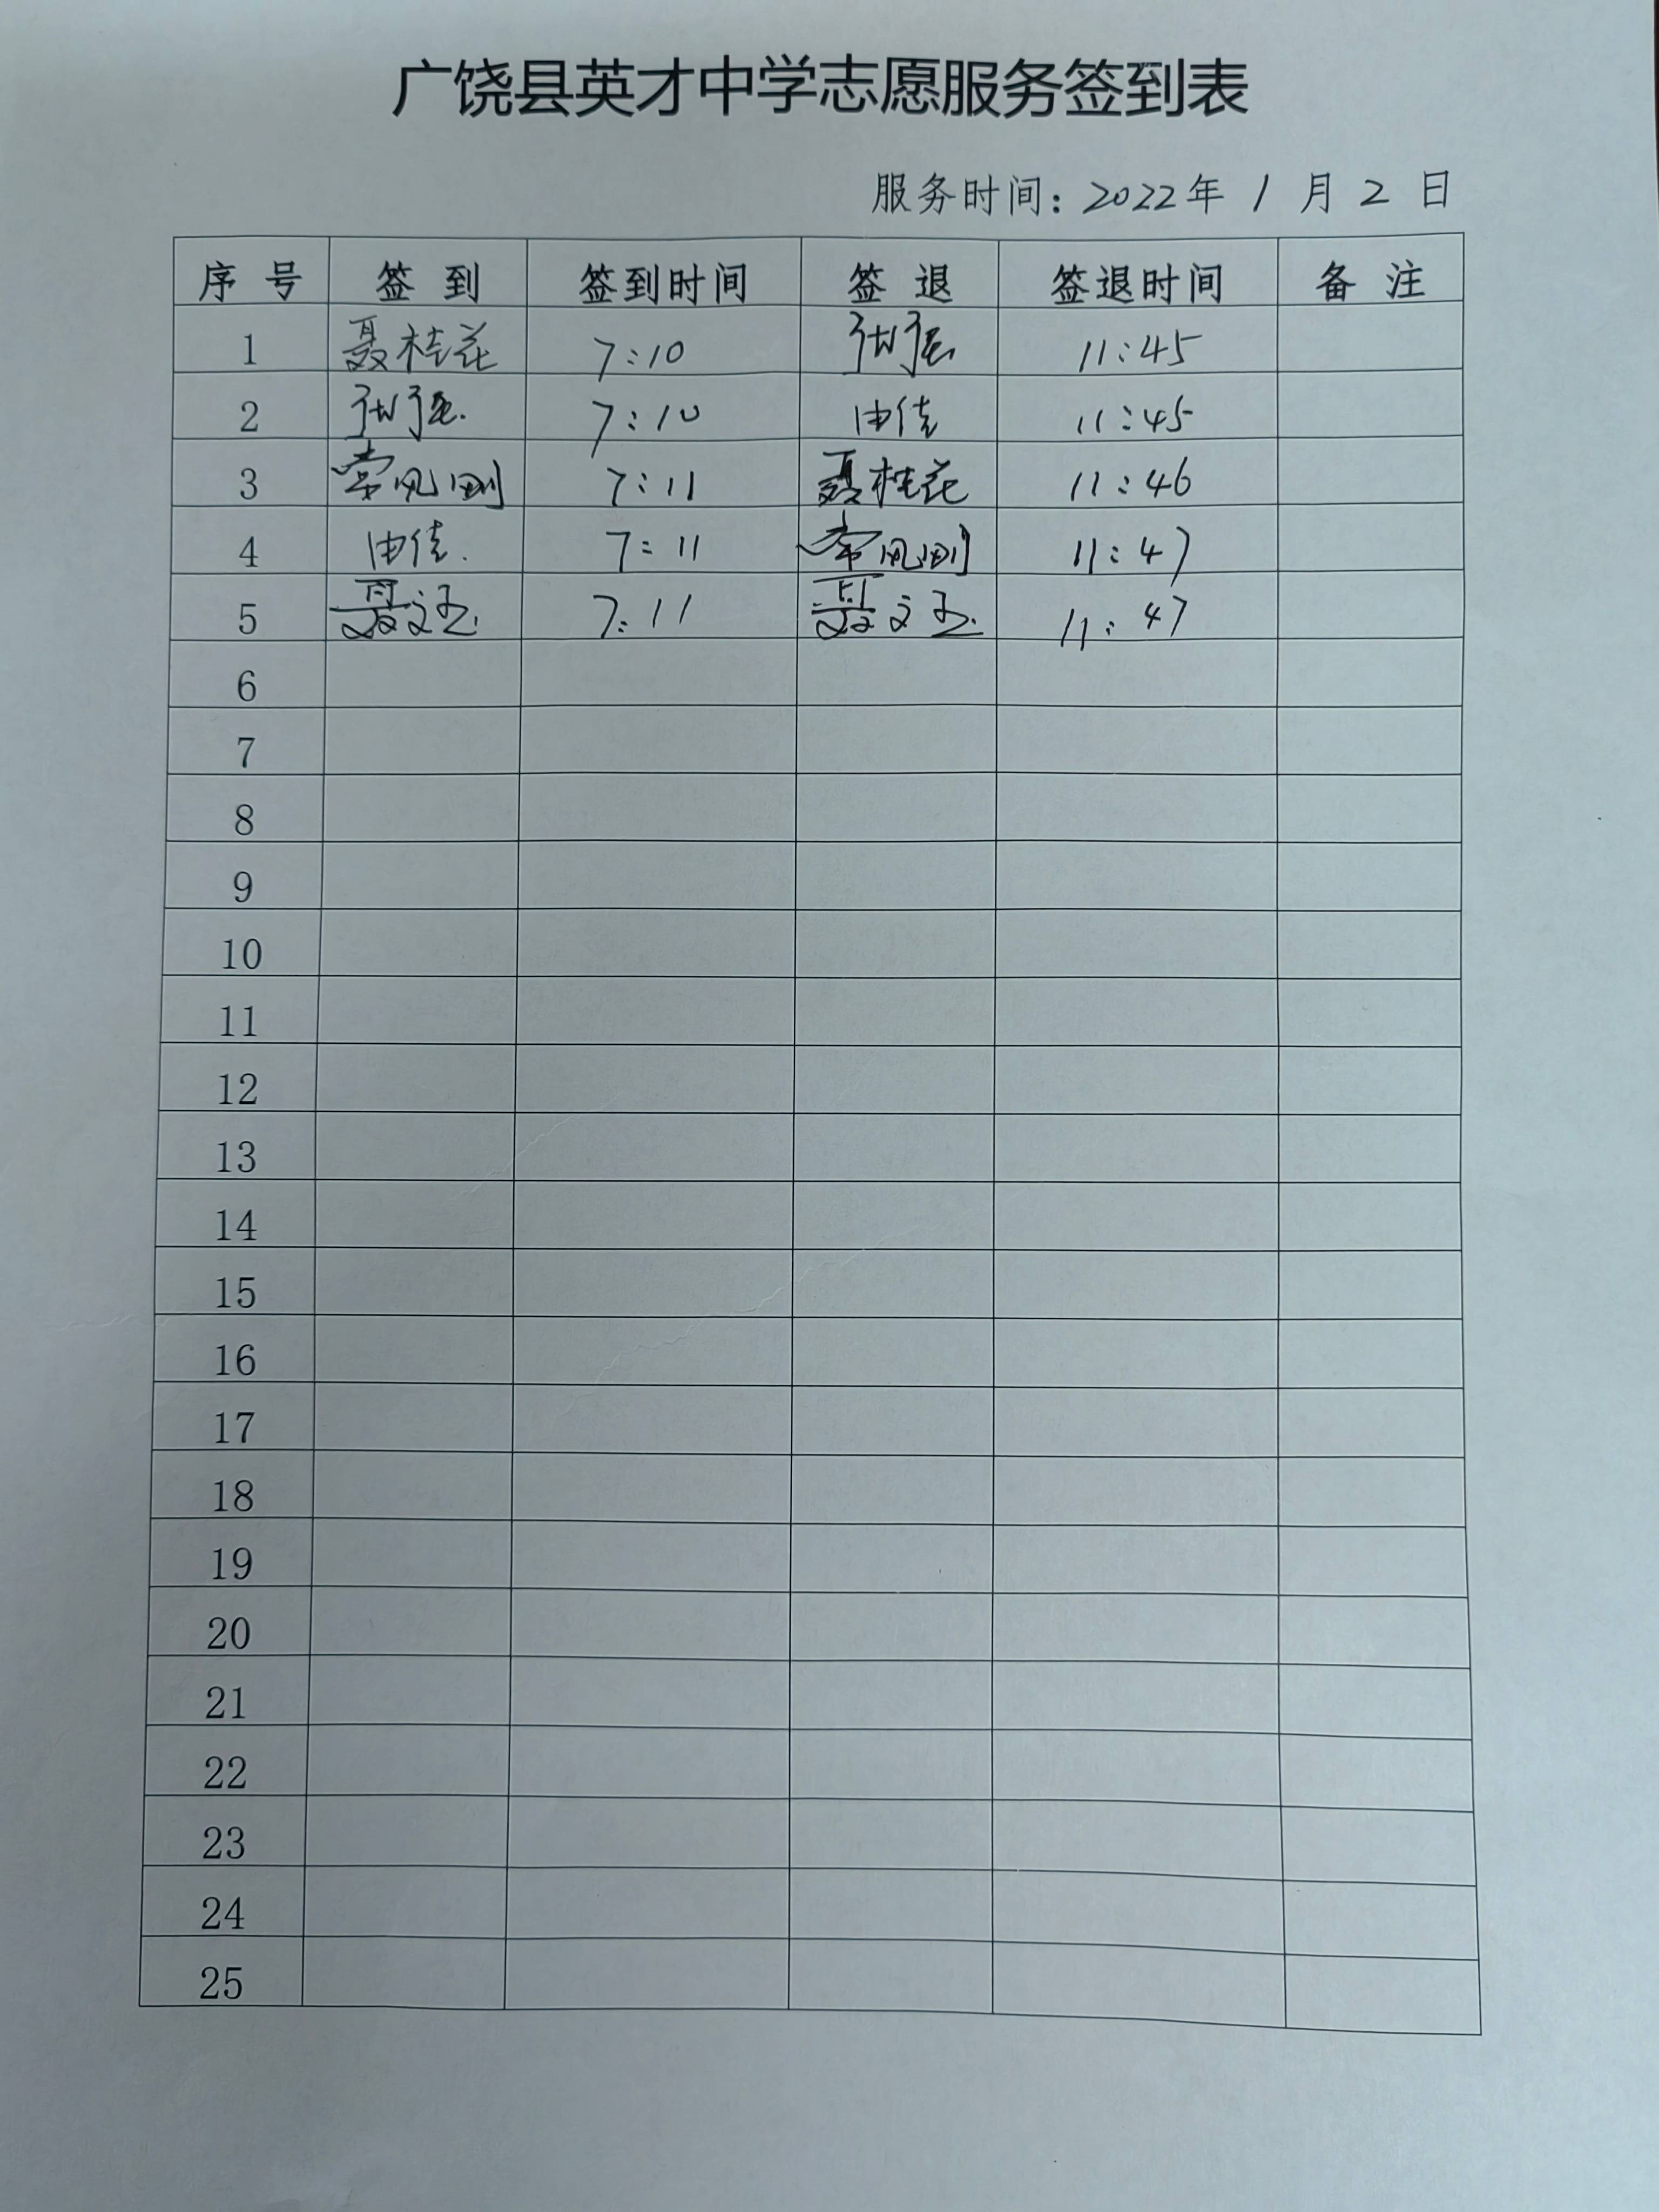 广饶县英才中学志愿服务签到表
服务时间：2022年 1 月 2 日
序 号 签 到 签到时间 签 退 签退时间 备 注
1 聂桂花 7:10 11:45
2 7:10 由佳 11:45
3 常凤刚 7:11 聂桂花 11:46
4 由佳. 7:11 常凤刚 11:47
5 7:11 11:47
6
7
8
9
10
11
12
13
14
15
16
17
18
19
20
21
22
23
24
25